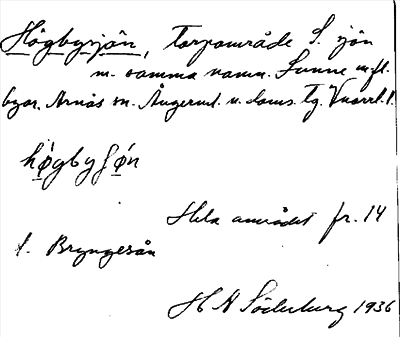 Högbysjön, Torpområde S. sjön
m. samma namn. Sunne m.fl.
byar. Arnäs sn. Ångerml. n. doms. Tg.
högbyʃön
Hela området fr. 14
t. Bryngesån
H A Söderberg 1936